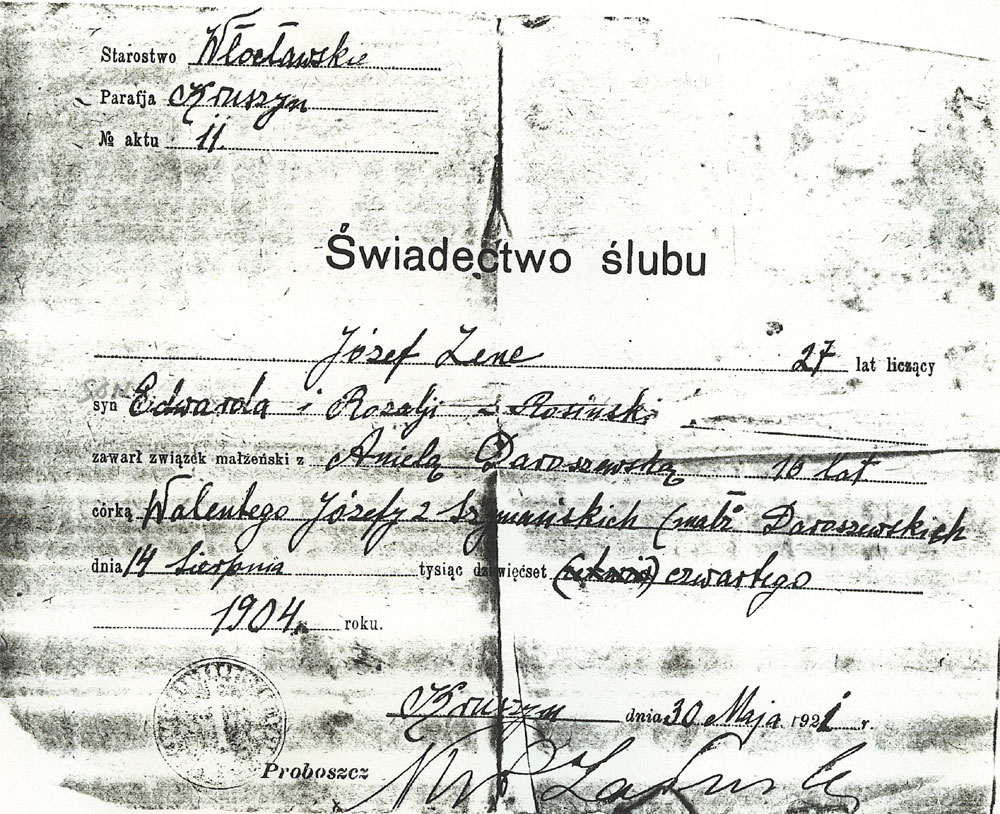 Starostwo Włocławskie
Parafja Kruszyn
№ aktu 11.
Świadectwo ślubu
Józef Zene 27 lat liczący
syn Edwarda i Rozalji - Rosinski
zawarł związek małżeński z Anielą Daroszewską 16 lat
córką Walentego Józefy z Szymańskich (małż Daroszewskich
dnia 14 Sierpnia tysiąc dziewięćset czwartego
1904. roku.
Kruszyn dnia 30 Maja 1921 r.
Proboszcz